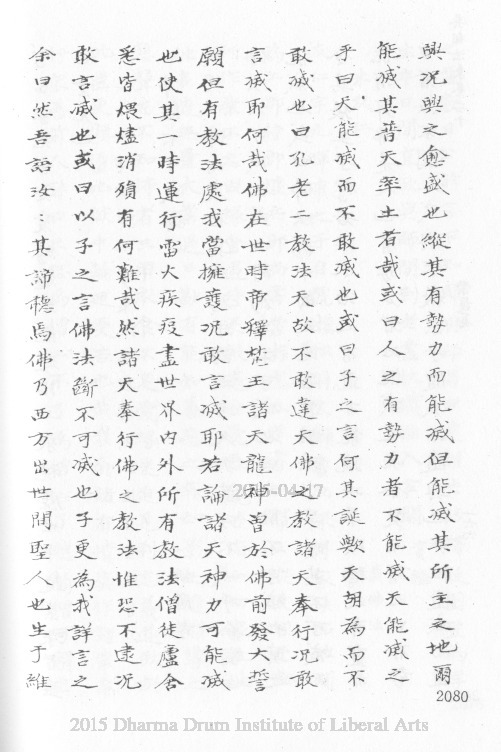 興況興之愈盛也縱其有勢力而能滅但能滅其所主之地爾
能滅其普天率土者哉或曰人之有勢力者不能滅天能滅之
乎曰天能滅而不敢滅也或曰子之言何其誕歟天胡為而不
敢滅也曰孔老二教法天故不敢違天佛之教諸天奉行況敢
言滅耶何哉佛在世時帝釋梵王諸天龍神曽於佛前發大誓
願但有教法處我當擁護況敢言滅耶若論諸天神力可能滅
也使其一時運行雷火疾疫盡世界內外所有教法僧徒廬舍
悉皆煨燼消殞有何難哉然諸天奉行佛之教法惟恐不逮況
敢言滅也或曰以子之言佛法斷不可滅也子更為我詳言之
余曰然吾語汝汝其諦聽焉佛乃西方出世間聖人也生于維
2015-04-17
2080
2015 Dharma Drum Institute of Liberal Arts